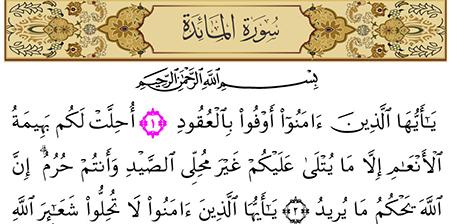 سُورَةُ المَائِدَة
بِسْمِ ٱللَّهِ ٱلرَّحْمَٰنِ ٱلرَّحِيمِ
يَٰٓأَيُّهَا ٱلَّذِينَ ءَامَنُوٓا۟ أَوْفُوا۟ بِٱلْعُقُودِ ١ أُحِلَّتْ لَكُم بَهِيمَةُ
ٱلْأَنْعَٰمِ إِلَّا مَا يُتْلَىٰ عَلَيْكُمْ غَيْرَ مُحِلِّى ٱلصَّيْدِ وَأَنتُمْ حُرُمٌ ۗ إِنَّ
ٱللَّهَ يَحْكُمُ مَا يُرِيدُ ٢ يَٰٓأَيُّهَا ٱلَّذِينَ ءَامَنُوا۟ لَا تُحِلُّوا۟ شَعَٰٓئِرَ ٱللَّهِ